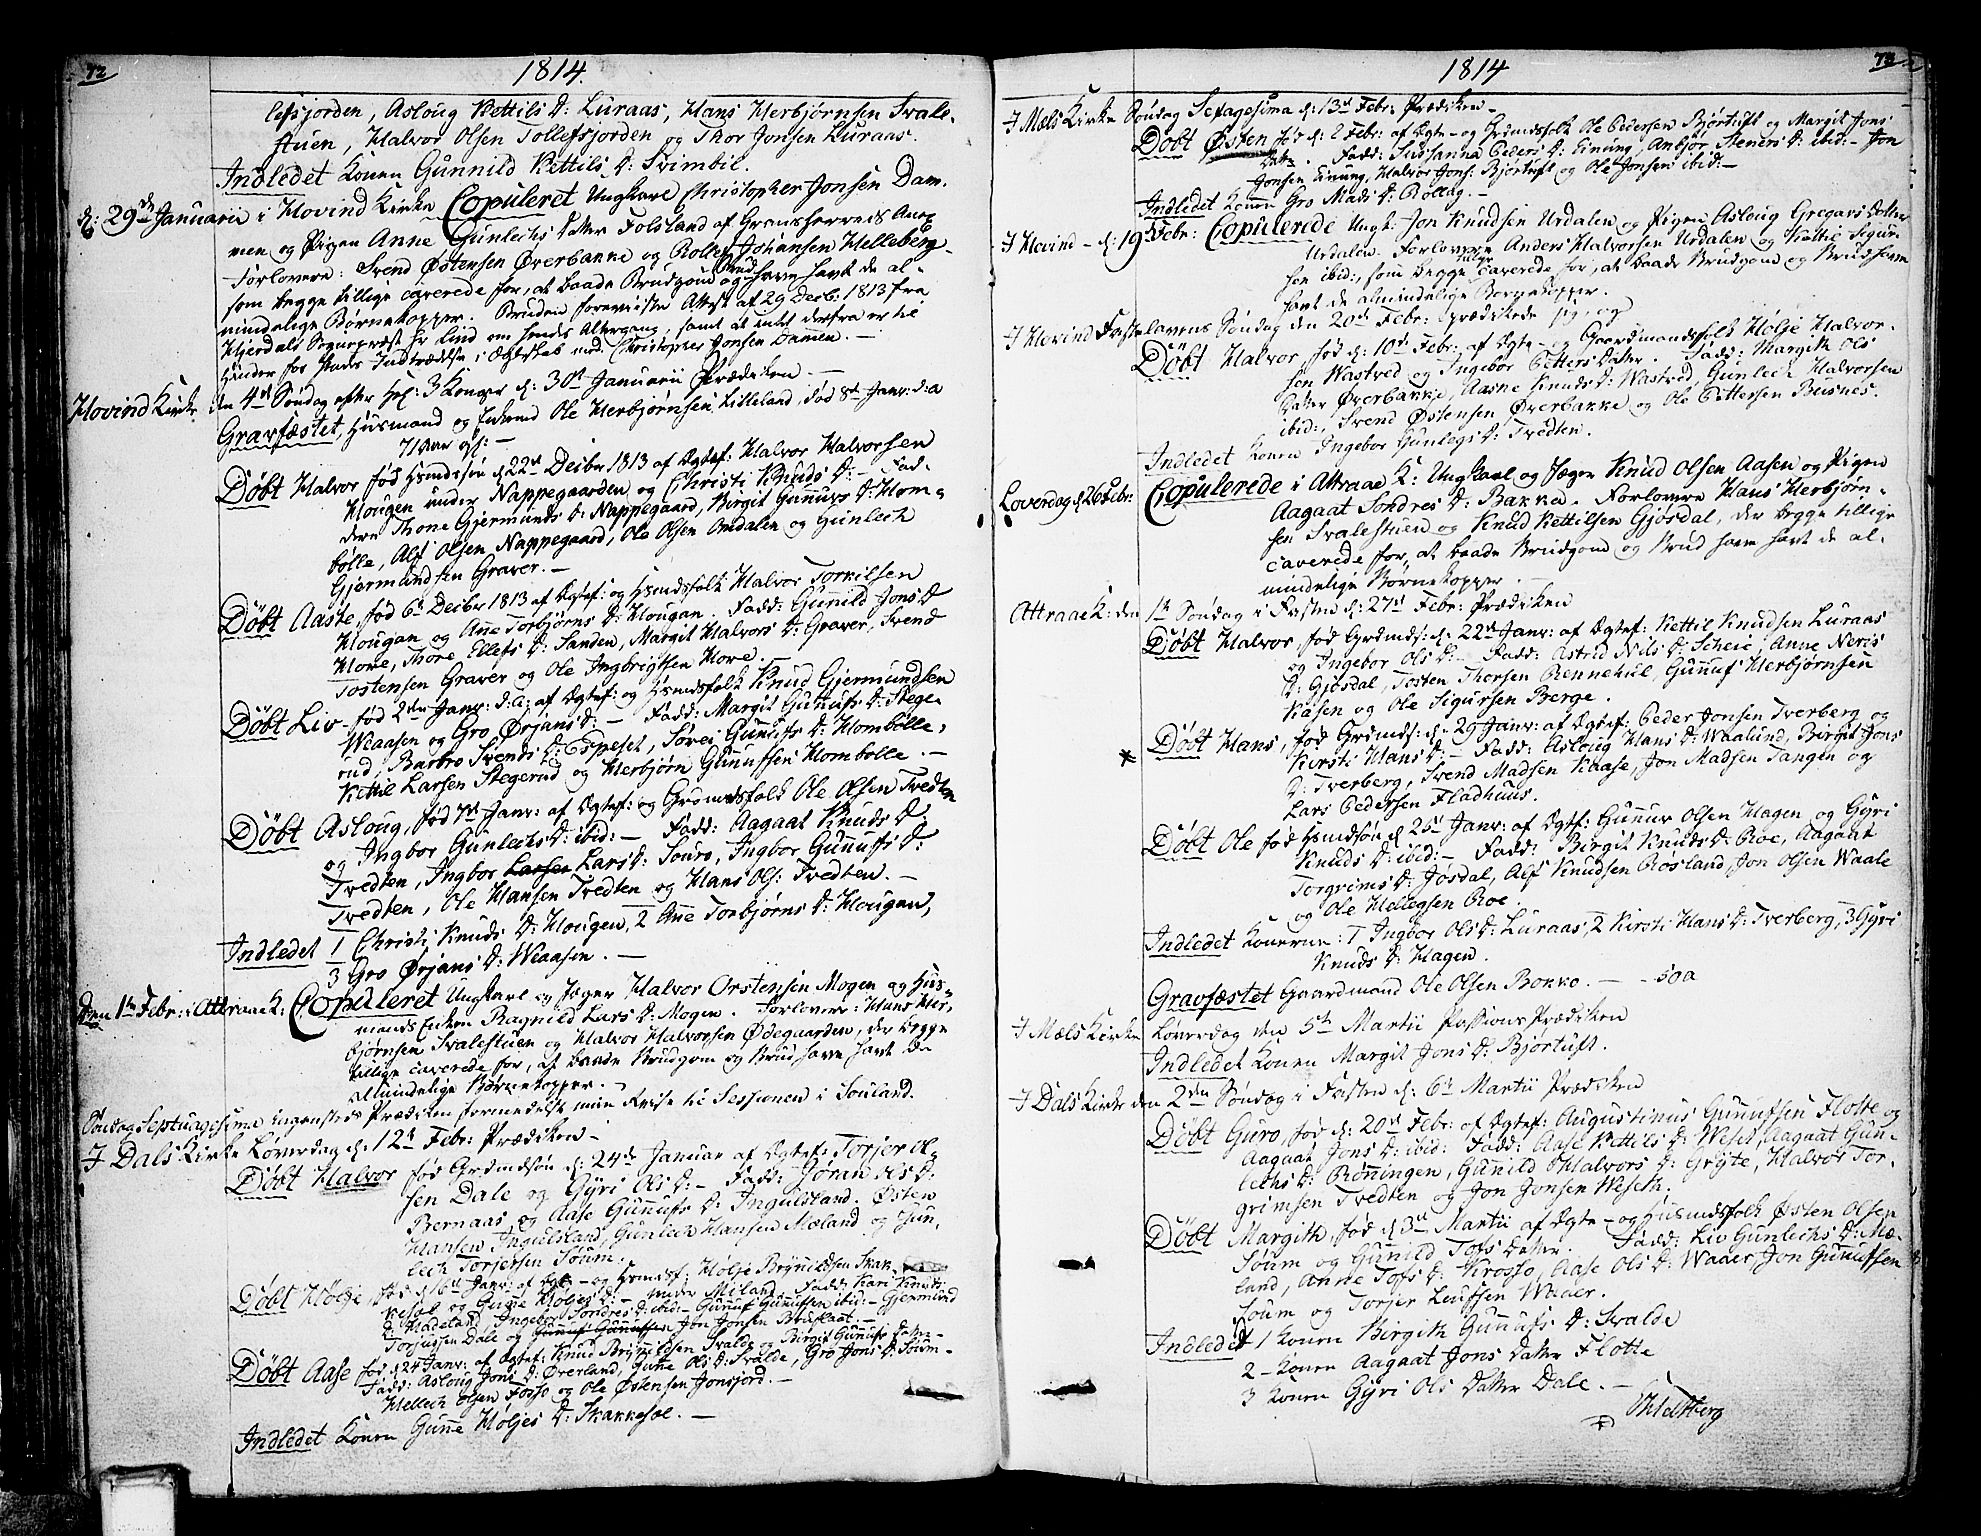 72
1814.
lefsjorden, Asloug Kettils D: Luraas, Hans Herbjørnsen Svale-
stuen, Halvor Olsen Tollefsjorden og Thor Jonsen Luraas.
Indledet Konen Gunnild Kettils D: Svimbil.
d: 29de Januarii i Hovind Kirke Copuleret Ungkarl Christopher Jonsen Dam-
men og Pigen Anne Gunlechs Datter Folsland af Gransherreds Anex
Forlovere: Svend Østensen Øverbanne og Rollef Johansen Helleberg
som begge tillige caverede for, at baade Brudgom og Brud have havt de al-
mindelige Børnekopper. Bruden foreviiste Attest af 29 Decbr: 1813 fra
Hjerdals Sognepræst Hr Lind om hendes Altergang, samt at intet derfra er til
Hinder for hendes Indtrædelse i Ægteskab med Christopher Jonsen Dammen. -
Hovind Kirke den 4de Søndag efter Hel: 3 Konger d: 30te Januarii Prædiken -
Gravfæstet, Husmand og Enkemd Ole Herbjørnsen Lilleland, død 8de Janr: d: a
71 Aar gl: -
Døbt Halvor fød Hsmdssøn d: 22de Decbr 1813 af Ægtef: Halvor Halvorsen
Hougen under Nappegaarden og Christi Knuds D: - Fad-
dere Thone Gjermunds D: Nappegaard, Birgit Gunnurs D: Hom-
bølle, Alf Olsen Nappegaard, Ole Olsen Omdalen og Gunlech
Gjermundsen Graver. -
Døbt Aaste, fød 6te Decbr 1813 af Ægtef: og Hsmdsfolk Halvor Torkilsen
Hougan og Anne Torbjørns D: Hougan. Fadd: Gunild Jons D
Hove, Thore Ellefs D: Sanden, Margit Halvors D: Graver, Svend
Tostensen Graver og Ole Ingbrigtsen Hove.
Døbt Liv - fød 2den Janr: d: a: af Ægtef: og Hsmdsfolk Knud Gjermundsen
Weaasen og Gro Ørjans D: - Fadd: Margit Guttufs D: Stege-
rud, Barbro Svends D: Espeset, Sørei Gunufs D: Hombølle,
Kettil Larsen Stegerud og Herbjørn Gunufsen Hombolle. -
Døbt Asloug, fød 7de Janr: af Ægtef: og Grdmdsfolk Ole Olsen Tvedten
og Ingbor Gunlechs D: ibid: - Fadd: Aagaat Knuds D:
Tvedten, Ingbor Larsen Lars D: Souro, Ingbor Gunufs D:
Tvedten, Ole Hansen Tvedten og Hans Ols: Tvedten. -
Indledet 1 Christi Knuds D: Hougen, 2 Anne Torbjørns D: Hougan,
3 Gro Ørjans D: Weaasen. -
Den 1te Febr: i Attraae K: Copuleret Ungkarl og Jæger Halvor Orstensen Mogen og Hus-
mands Enken Ragnild Lars D: Mogen. Forlovere: Hans Her-
bjørnsen Svalestuen og Halvor Halvorsen Ødegaarden, der begge
tillige caverede for, at baade Brudgom og Brud have havt de
almindelige Børnekopper. -
Søndag Septuagesima ingensteds Prædiken formedelst min Reise til Sessionen i Souland.
I Dals Kirke Løverdag d: 12te Febr: Prædiken -
Døbt Halvor fød Grdmdsøn d: 24de Januar af Ægtef: Torjer Ol-
sen Dale og Gyri Ols D: - Fadd: Joran Ols D:
Bernaas og Aase Gunnufs D: Ingulsland. Østen
Hansen Ingulsland, Gunlech Hansen Mæland og Gun-
lech Torjersen Søum.
Døbt Høljo, fød d: 16de Janr: af Ægte- og Hsmdsf: Høljo Brynildsen Skak-
kesæl og Gunne Høljes D: - under Miland. Fadd: Kari Knuds
D: Mæland, Ingebor Sondres D: ibid: - Gunuf Gunufsen ibid: - Gjermund
Torjussen Dale og Gunuf Gunufsen Jon Jonsen Bruslaat: -
Døbt Aase fød d: 24 Janr: af Ægtef: Knud Brynildsen Svalde og Birgit Gunufs Datter -
Fadd: Asloug Jons D: Øverland, Gunne Ols D: Svalde, Gro Jons D: Søum -
Hellech Olsen Fosso og Ole Østensen Jonsjord. -
Indledet Konen Gunne Høljes D: Skakkesæl. -
73
1814
I Mæls Kirke Søndag Sexagesima d: 13de Febr: Prædiken -
Døbt Østen fød d: 2 Febr: af Ægte- og Grdmdsfolk Ole Pedersen Bjørtuft og Margit Jons
Datr. Fadd: Susanna Peders D: Einung, Anbjør Steners D: ibid: - Jon
Jonsen Einung, Halvor Jons: Bjørtuft og Ole Jonsen ibid: -
Indledet Konen Gro Mads D: Bøllæg. -
I Hovind - d: 19de Febr: Copulerede Ungk: Jon Knudsen Urdalen og Pigen Asloug Gregars Datter
Urdalen. Forlovere Anders Halvorsen Urdalen og Kettil Sigur-
sen ibid:, som begge tillige caverede for, at baade Brudgom og Brud have
havt de almindelige Børnekopper.
I Hovind Fastelavens Søndag den 20de Febr: prædikede jeg, og
Døbt Halvor, fød d: 10de Febr: af Ægte- og Gaardmandsfolk Høljo Halvor-
sen Wastved og Ingebor Petters Datter. Fadd: Margith Ols
Datter Øverbakke, Aasne Knuds D: Wastved, Gunlech Halvorsen
ibid:, Svend Østensen Øverbakke og Ole Pittersen Busnes.
Indledet Konen Ingebor Gunlegs D: Tvedten.
Løverdag d: 26 Febr: Copulerede i Attraae K: Ungkarl og Jæger Knud Olsen Aasen og Pigen
Aagaat Sondres D: Bakken. Forlovere Hans Herbjørn-
sen Svalestuen og Knud Kettilsen Gjøsdal, der begge tillige
caverede for, at baade Brudgom og Brud have havt de al-
mindelige Børnekopper.
Attraae K: den 1te Søndag i Fasten d: 27de Febr: Prædiken
Døbt Halvor, fød Grdmds: d: 22de Janr: af Ægtef: Kettil Knudsen Luraas
og Ingebor Ols D: - Fadd: Astrid Nils D: Scheie, Anne Neris
D: Gjøsdal, Tosten Thorsen Rennehul, Gunnuf Herbjørnsen
Kasen og Ole Sigursen Berge.
* Døbt Hans, fød Grdmds: d: 29 Janr: af Ægtef: Peder Jonsen Tverberg og
Kirsti Hans D: - Fadd: Asloug Hans D: Waalund, Birgit Jons
D: Tverberg, Svend Madsen Kaase, Jon Madsen Tangen og
Lars Pedersen Fladhuus.
Døbt Ole fød Hsmdsøn d: 25de Janr: af Ægtef: Gunnur Olsen Hagen og Gyri
Knuds D: ibid: - Fadd: Birgit Knuds D: Roe, Aagaat
Torgrims D: Josdal, Alf Knudsen Røsland, Jon Olsen Waale
og Ole Hellegsen Roe.
Indledet Konerne: 1 Ingbor Ols D: Luraas, 2 Kirsti Hans D: Tverberg, 3 Gyri
Knuds D: Hagen.
Gravfæstet Gaardmand Ole Olsen Bokko. - - 50 a
I Mæls Kirke Løverdag den 5te Martii Passions Prædiken
Indledet Konen Margit Jons D: Bjortuft.
I Dals Kirke den 2den Søndag i Fasten d: 6te Martii Prædiken
Døbt Guro, fød d: 20de Febr: af Ægtef: Augustinus Gunufsen Flotte og
Aagaat Jons D: ibid: Fadd: Aase Kettils D: Weset, Aagaat Gun-
lechs D: Røningen, Gunild Halvors D: Grytte, Halvor Tor-
grimsen Tvedten og Jon Jonsen Weseth.
Døbt Margith, fød d: 3de Martii af Ægte- og Husmdsfolk Østen Olsen
Søum og Gunild Tofs Datter. Fadd: Liv Gunlechs D: Mæ-
land, Anne Tofs D: Krosso, Aase Ols D: Waaer, Jon Gunufsen
Søum og Torjer Leufsen Waaer.
Indledet 1 Konen Birgith Gunufs D: Svalde
2 - Konen Aagaat Jons Datter Flotte
3 Konen Gyri Ols Datter Dale. -